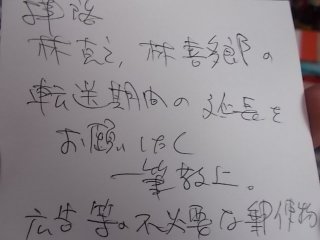 拝啓
林克之，林喜多郎の
転送期間の延長を
お願いしたく
一筆敬上。
広告等の不必要な郵便物